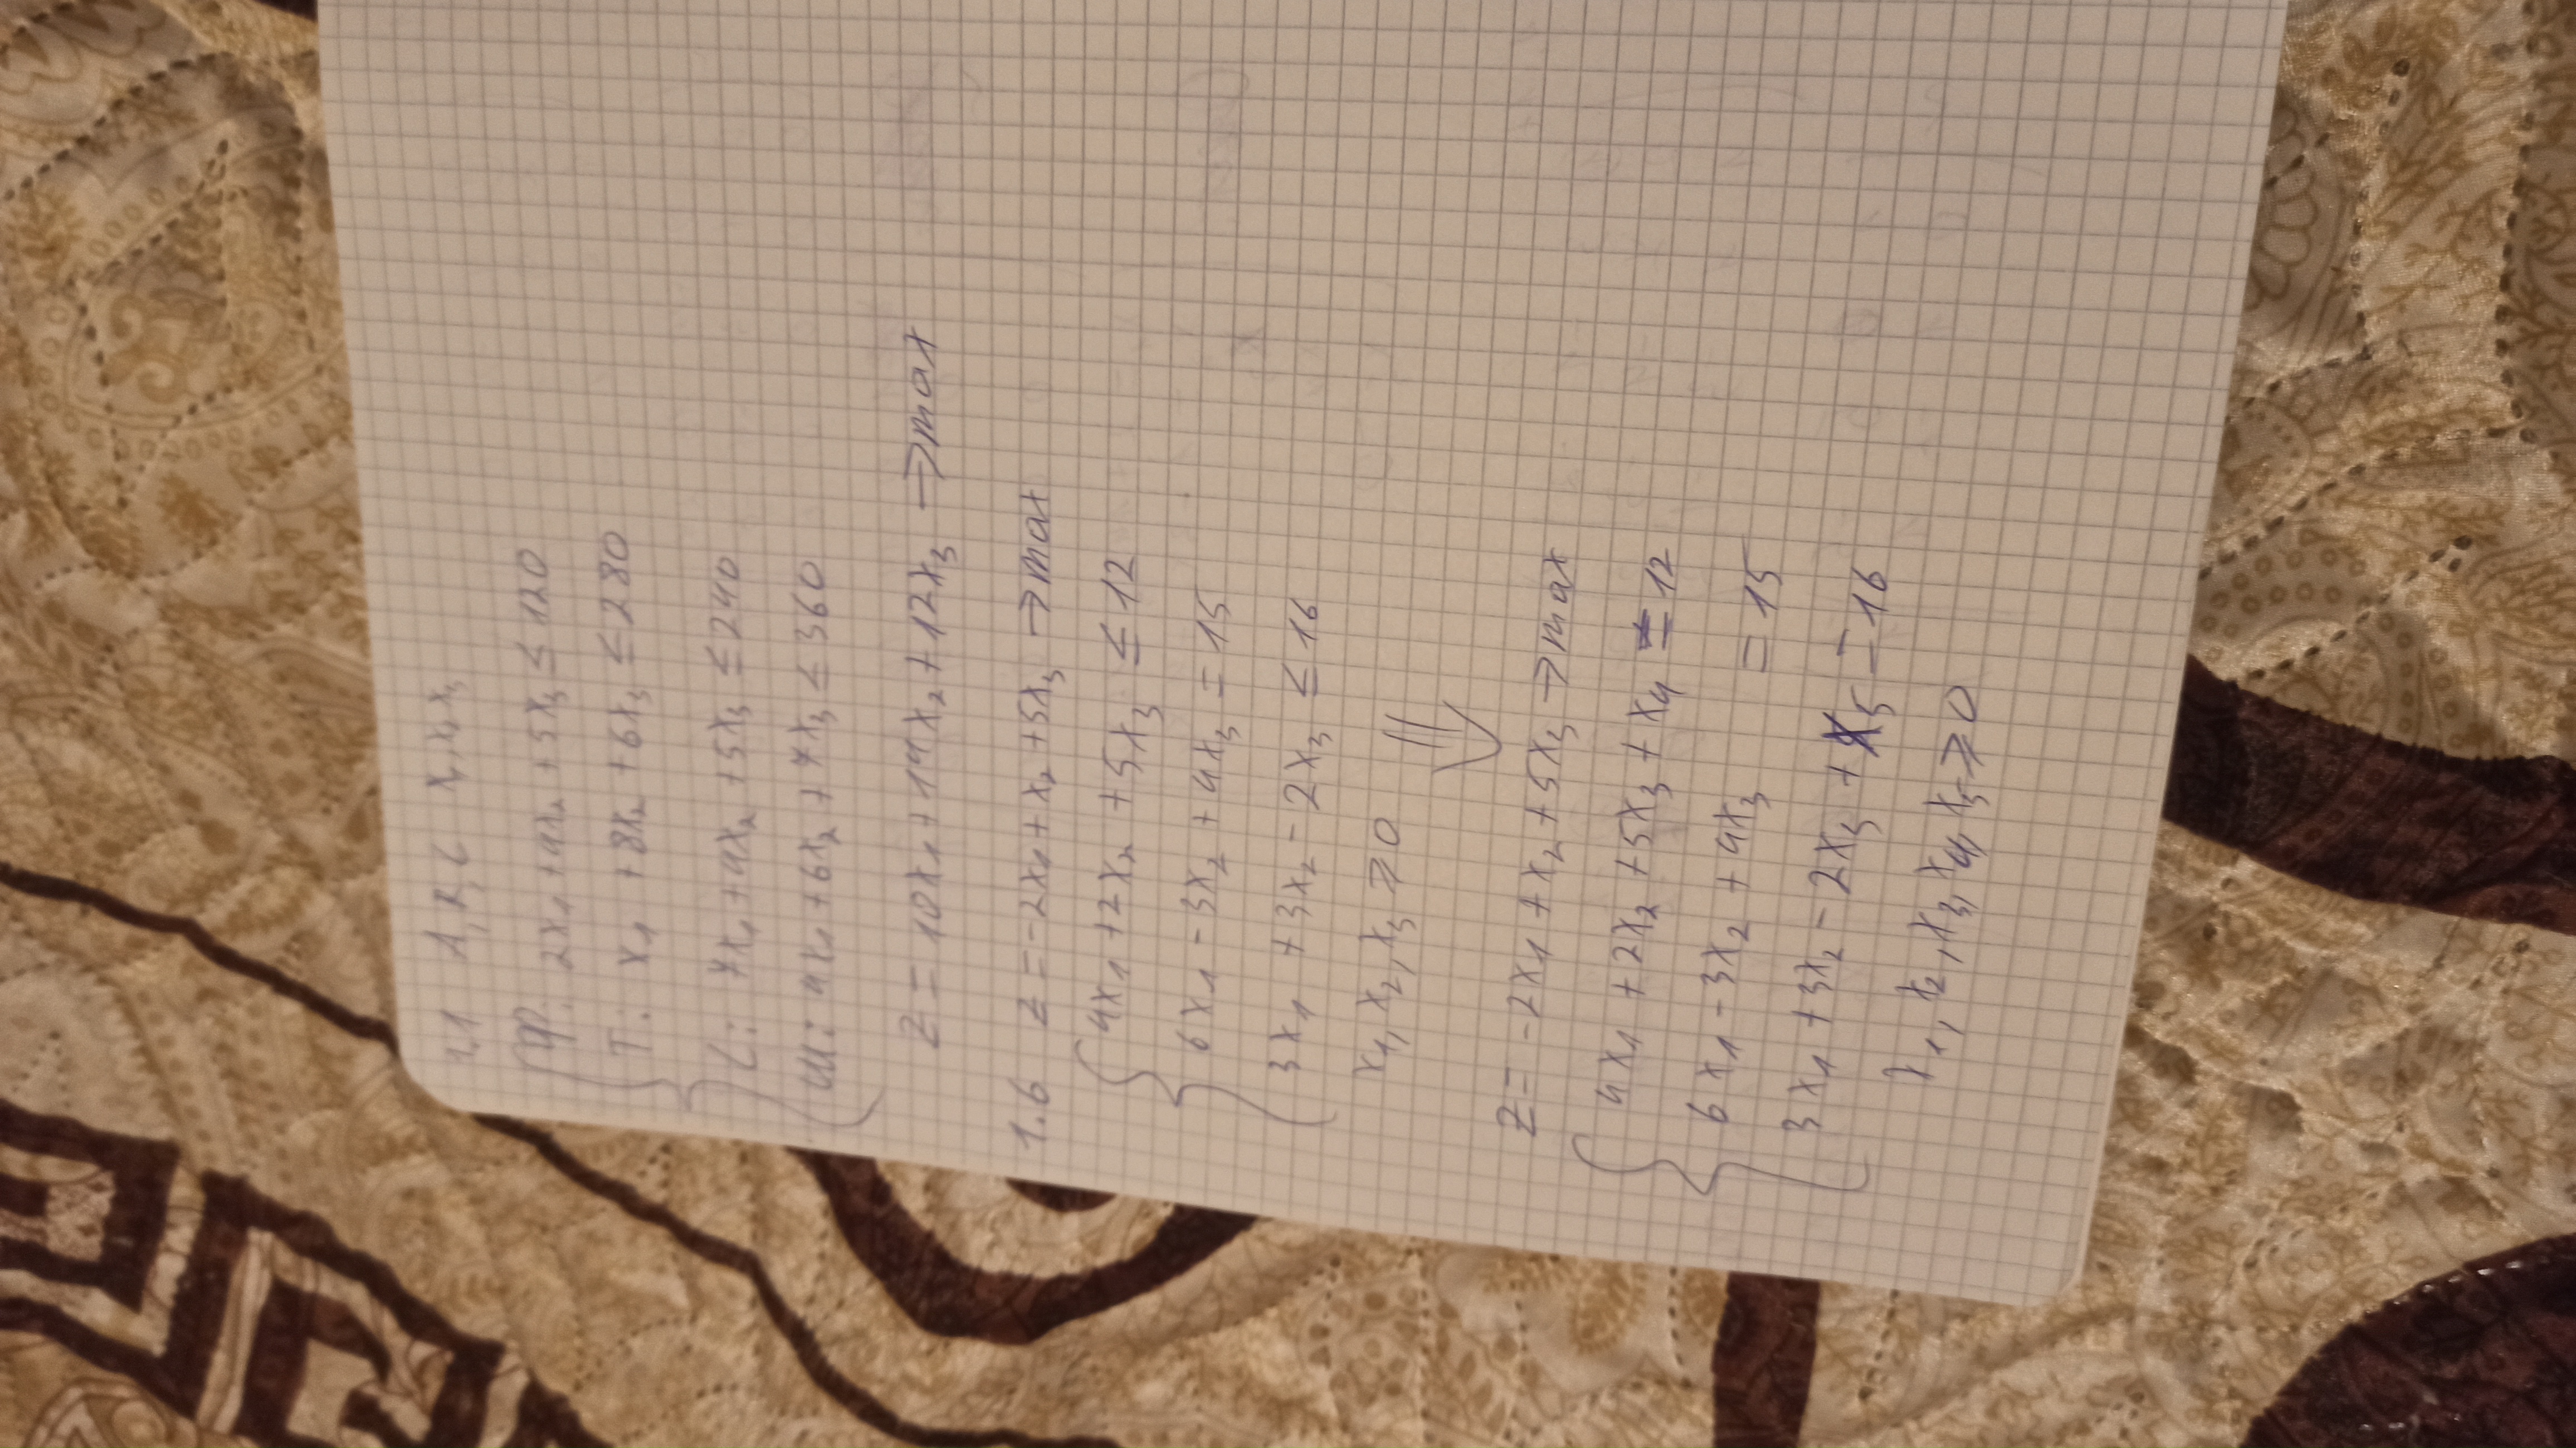 1.1 A, B, C x₁, x₂ x₃
Ф: 2x₁ + 4x₂ + 5x₃ ≤ 120
Т: x₁ + 8x₂ + 6x₃ ≤ 280
С: 7x₁ + 4x₂ + 5x₃ ≤ 240
Ш: 4x₁ + 6x₂ + 7x₃ ≤ 360
Z = 10x₁ + 14x₂ + 12x₃ → max
1.6 Z = -2x₁ + x₂ + 5x₃ → max
4x₁ + 2x₂ + 5x₃ ≤ 12
6x₁ - 3x₂ + 4x₃ = 15
3x₁ + 3x₂ - 2x₃ ≤ 16
x₁, x₂, x₃ ⩾ 0
⇓
Z = -2x₁ + x₂ + 5x₃ → max
4x₁ + 2x₂ + 5x₃ + x₄ = 12
6x₁ - 3x₂ + 4x₃ = 15
3x₁ + 3x₂ - 2x₃ + x₅ = 16
x₁, x₂, x₃, x₄, x₅ ⩾ 0